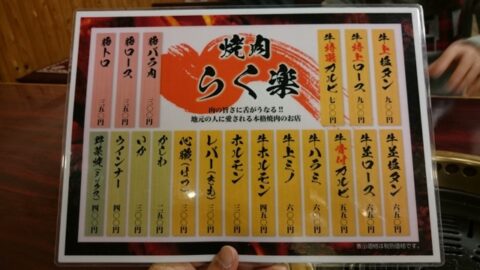 焼肉
らく楽
肉の旨さに舌がうなる!!
地元の人に愛される本格焼肉のお店
牛上塩タン 九〇〇円
牛特上ロース 九〇〇円
牛特選カルビ 七〇〇円
豚バラ肉 三〇〇円
豚ロース 三五〇円
豚トロ 三五〇円
牛並塩タン 六五〇円
牛並ロース 六五〇円
牛骨付カルビ 五五〇円
牛ハラミ 六〇〇円
牛上ミノ 六〇〇円
牛ホルモン 四五〇円
ホルモン 三五〇円
レバー
心臓(はつ) 三五〇円
かしわ 三五〇円
いか 三〇〇円
ウインナー 三〇〇円
野菜焼 四〇〇円
表示価格は税別価格です。